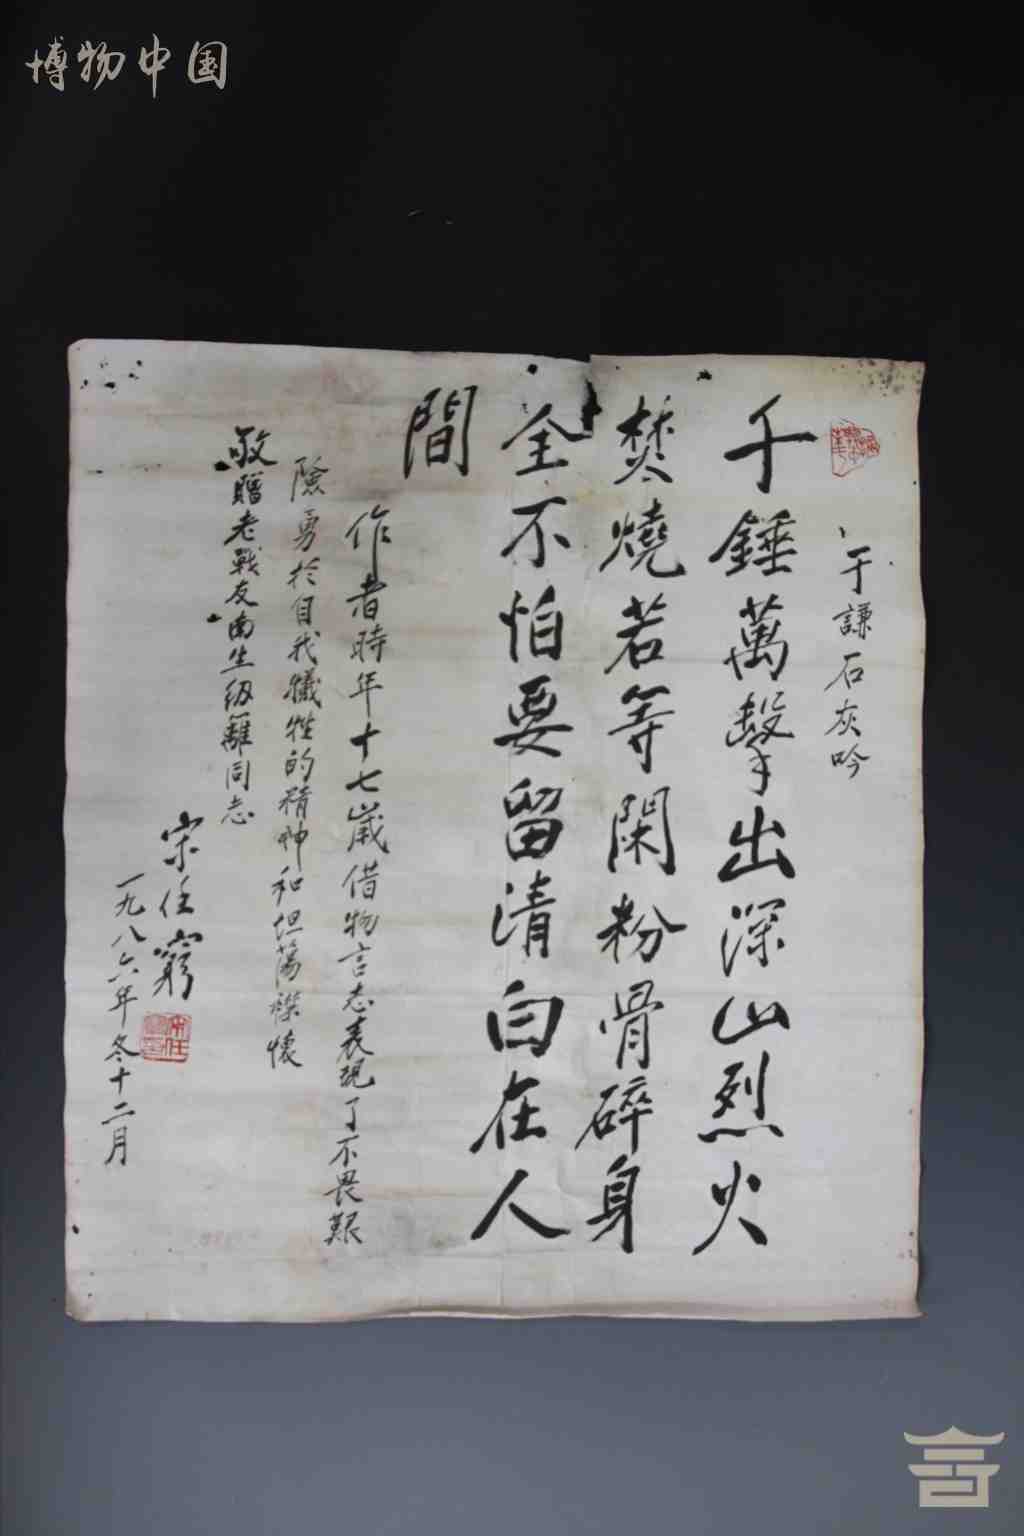 博物中国
于謙石灰吟
千錘萬擊出深山烈火
焚燒若等閑粉骨碎身
全不怕要留清白在人
間
作者時年十七歲借物言志表現了不畏艱
險勇於自我犧牲的精神和坦蕩襟懷
敬贈老戰友南生級離同志
宋任窮
一九八六年冬十二月
宋任